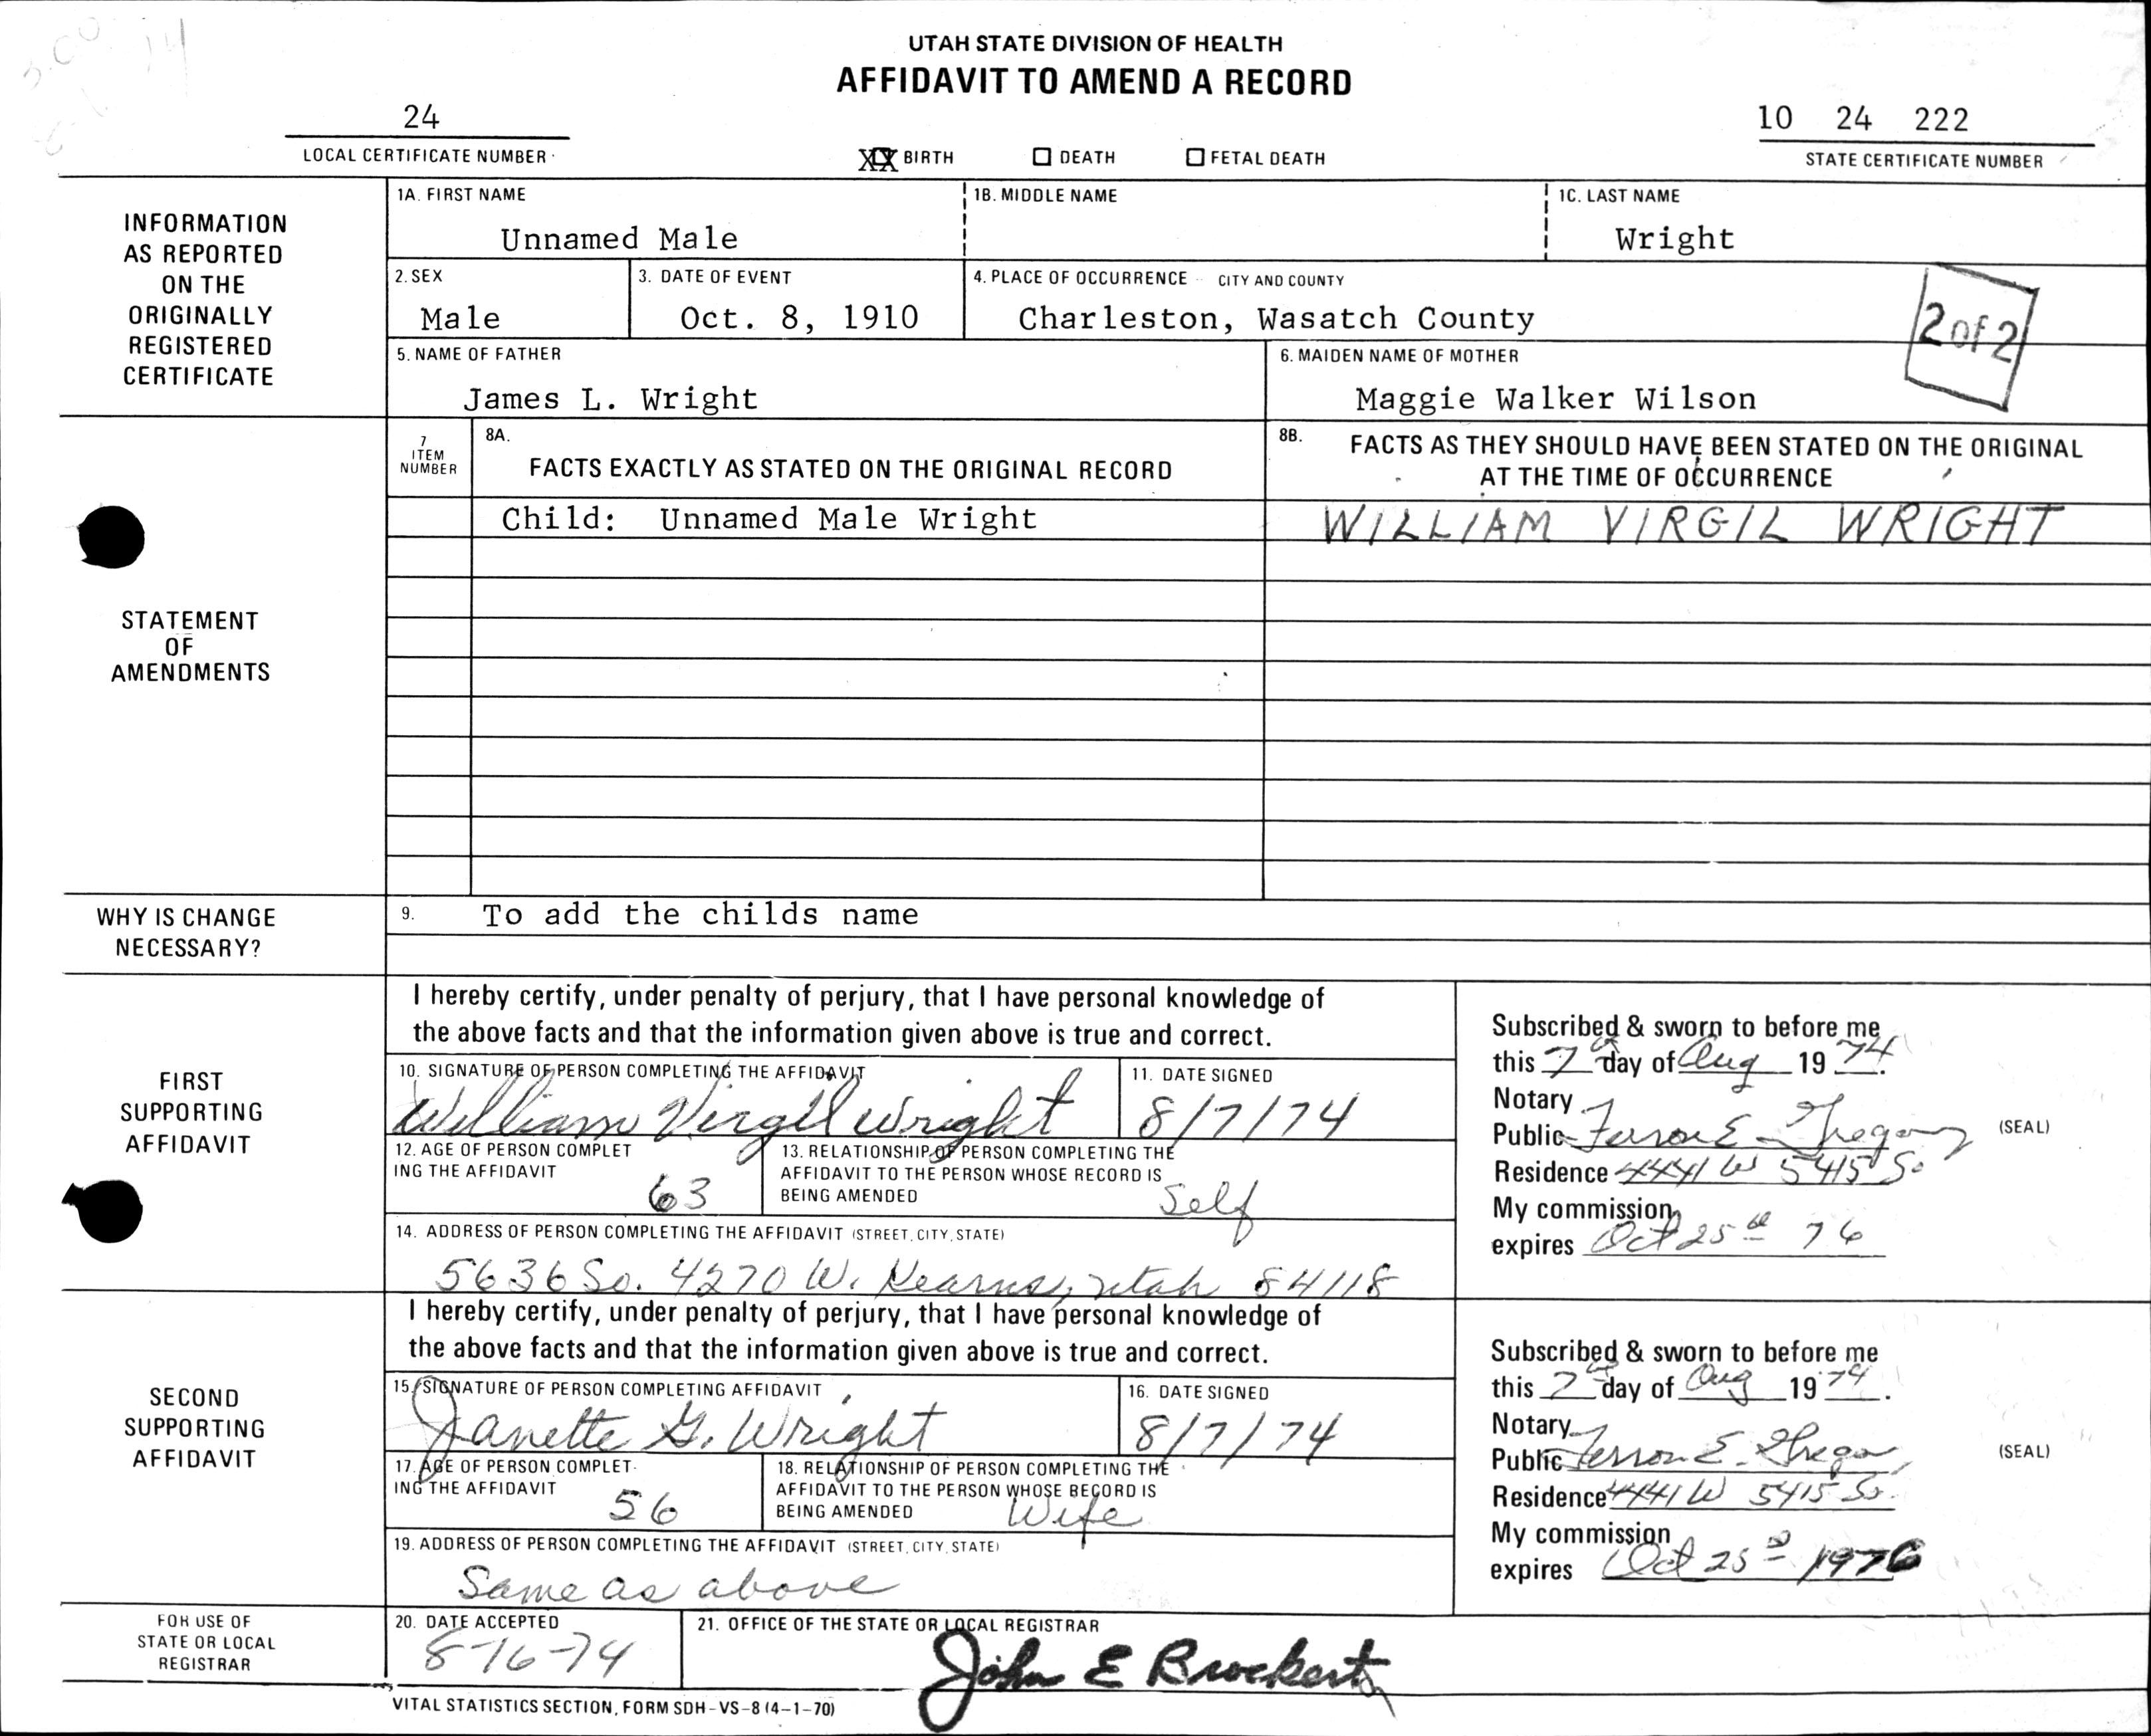 UTAH STATE DIVISION OF HEALTH
AFFIDAVIT TO AMEND A RECORD
24
LOCAL CERTIFICATE NUMBER
XX BIRTH DEATH FETAL DEATH
10 24 222
STATE CERTIFICATE NUMBER
INFORMATION
AS REPORTED
ON THE
ORIGINALLY
REGISTERED
CERTIFICATE
1A. FIRST NAME
Unnamed Male
1B. MIDDLE NAME
1C. LAST NAME
Wright
2. SEX
Male
3. DATE OF EVENT
Oct. 8, 1910
4. PLACE OF OCCURRENCE - CITY AND COUNTY
Charleston, Wasatch County
2 of 2
5. NAME OF FATHER
James L. Wright
6. MAIDEN NAME OF MOTHER
Maggie Walker Wilson
STATEMENT
OF
AMENDMENTS
7
ITEM
NUMBER
8A.
FACTS EXACTLY AS STATED ON THE ORIGINAL RECORD
8B.
FACTS AS THEY SHOULD HAVE BEEN STATED ON THE ORIGINAL
AT THE TIME OF OCCURRENCE
Child: Unnamed Male Wright
WILLIAM VIRGIL WRIGHT
WHY IS CHANGE
NECESSARY?
9. To add the childs name
FIRST
SUPPORTING
AFFIDAVIT
I hereby certify, under penalty of perjury, that I have personal knowledge of
the above facts and that the information given above is true and correct.
10. SIGNATURE OF PERSON COMPLETING THE AFFIDAVIT
William Virgil Wright
11. DATE SIGNED
8/7/74
12. AGE OF PERSON COMPLET
ING THE AFFIDAVIT
63
13. RELATIONSHIP OF PERSON COMPLETING THE
AFFIDAVIT TO THE PERSON WHOSE RECORD IS
BEING AMENDED
Self
14. ADDRESS OF PERSON COMPLETING THE AFFIDAVIT (STREET, CITY, STATE)
5636 So. 4270 W. Kearns, Utah 84118
Subscribed & sworn to before me
this 7th day of Aug 19 74.
Notary
Public E.
Residence 4441 W 5415 So
My commission
expires Oct 25th 76
(SEAL)
SECOND
SUPPORTING
AFFIDAVIT
I hereby certify, under penalty of perjury, that I have personal knowledge of
the above facts and that the information given above is true and correct.
15. SIGNATURE OF PERSON COMPLETING AFFIDAVIT
Janette G. Wright
16. DATE SIGNED
8/7/74
17. AGE OF PERSON COMPLET-
ING THE AFFIDAVIT
56
18. RELATIONSHIP OF PERSON COMPLETING THE
AFFIDAVIT TO THE PERSON WHOSE RECORD IS
BEING AMENDED
Wife
19. ADDRESS OF PERSON COMPLETING THE AFFIDAVIT (STREET, CITY, STATE)
Same as above
Subscribed & sworn to before me
this 7th day of Aug 19 74.
Notary
Public E.
Residence 4441 W 5415 So.
My commission
expires Oct 25 1976
(SEAL)
FOR USE OF
STATE OR LOCAL
REGISTRAR
20. DATE ACCEPTED
8-16-74
21. OFFICE OF THE STATE OR LOCAL REGISTRAR
John E Brockert
VITAL STATISTICS SECTION, FORM SDH-VS-8 (4-1-70)